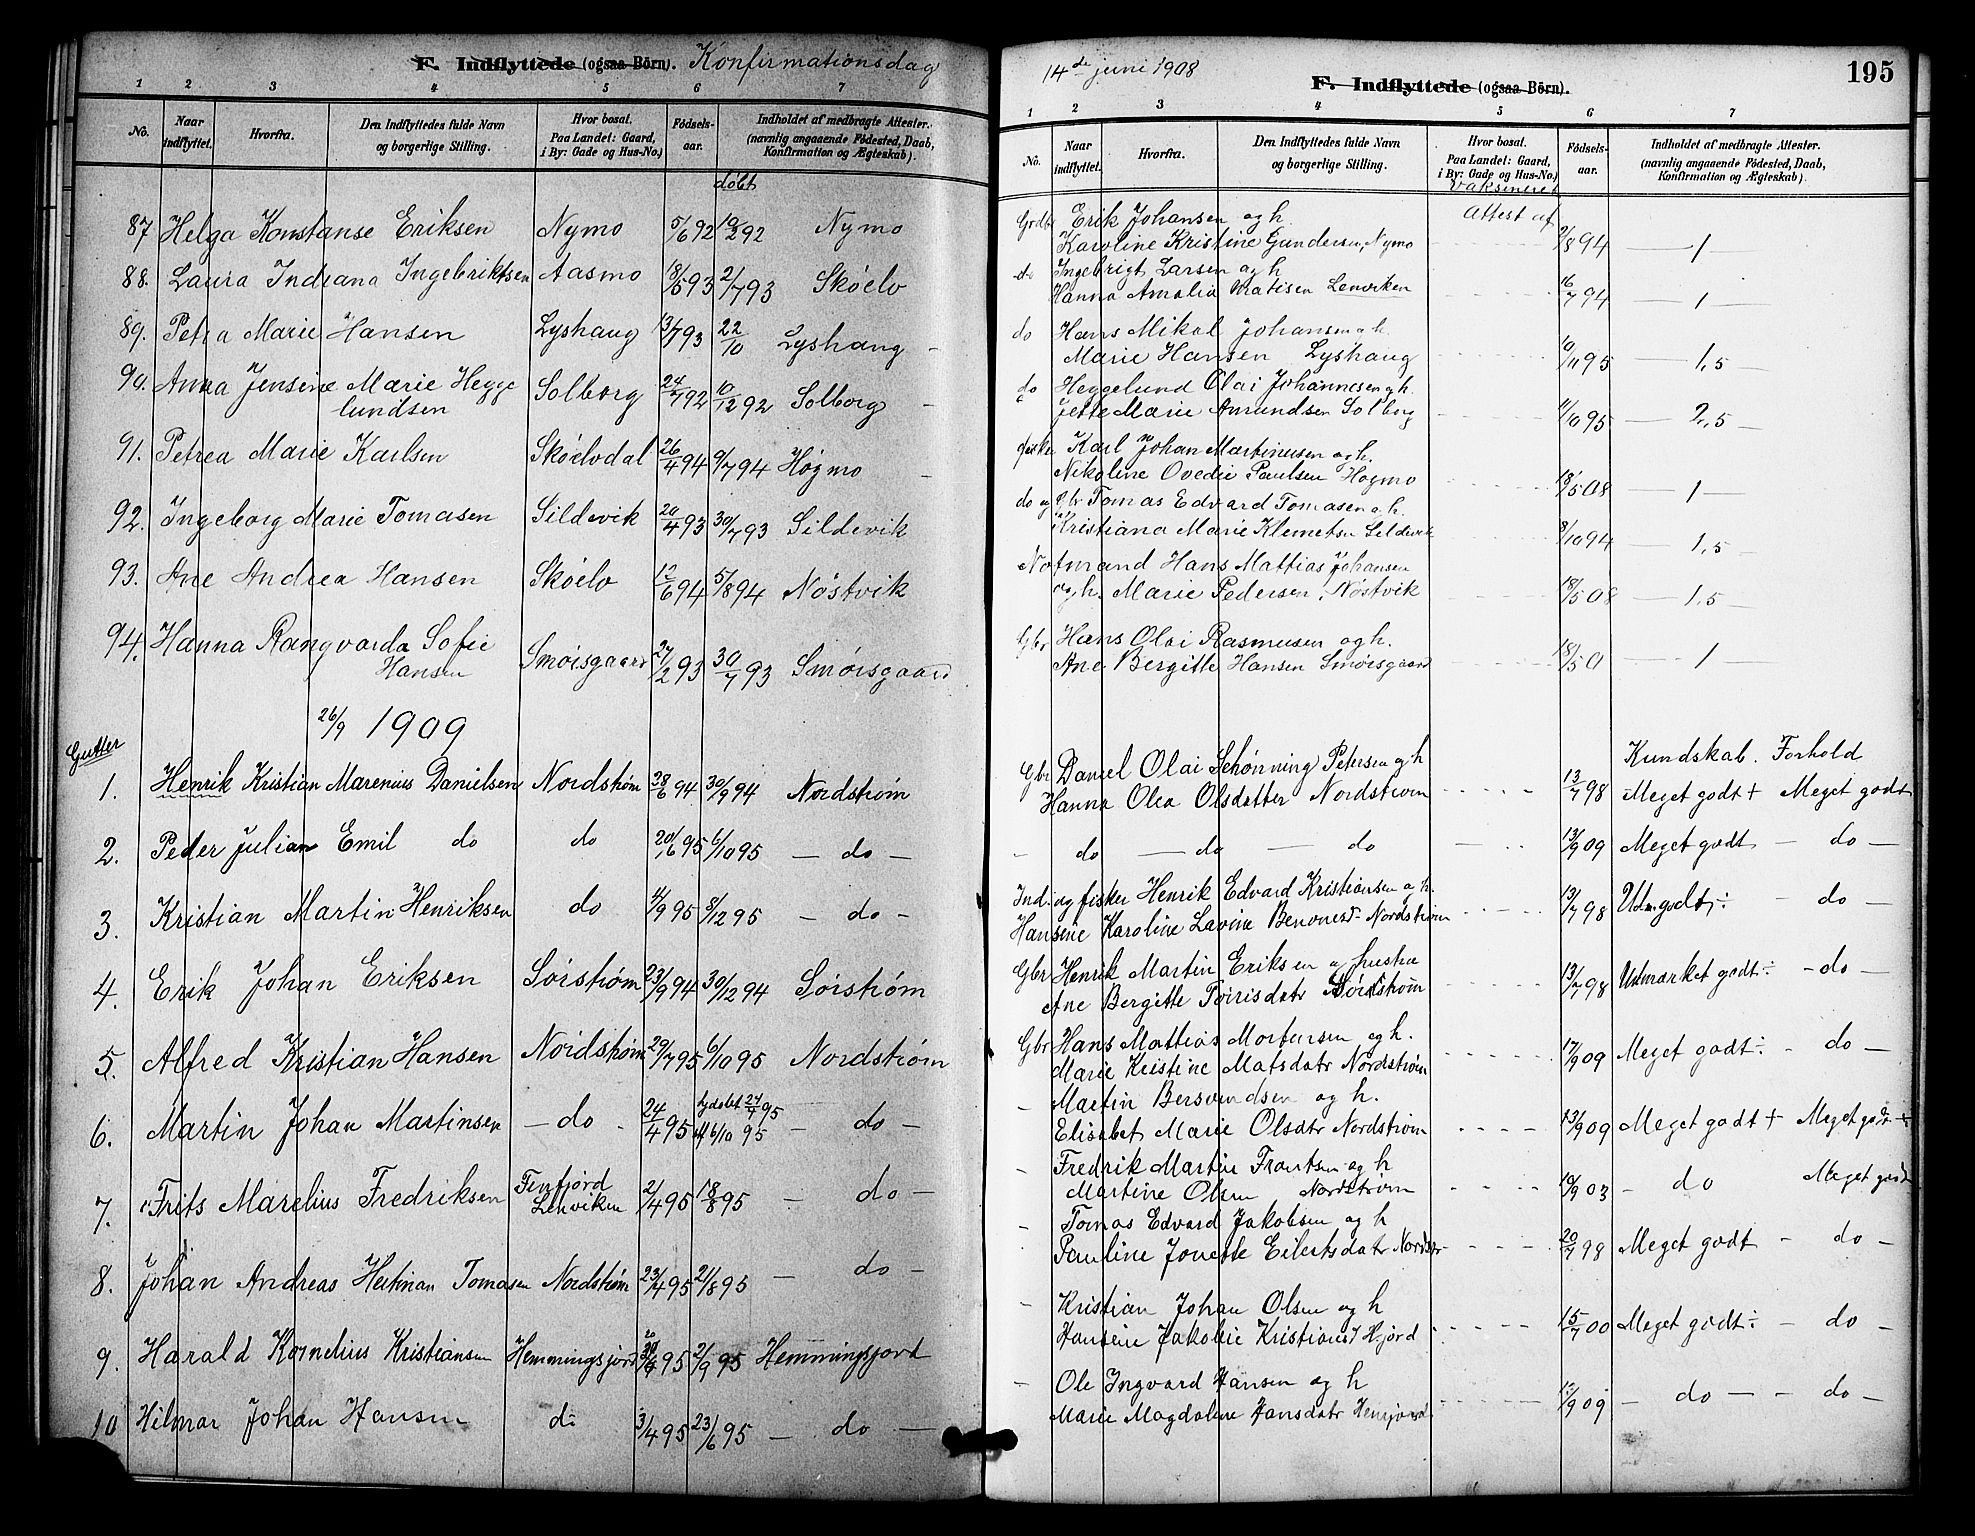 F. Indflyttede (ogsaa Börn). Konfirmationsdag
1 2 3 4 5 6 7
No.
Naar indflyttet.
Hvorfra.
Den Indflyttedes fulde Navn og borgerlige Stilling.
Hvor bosat. Paa Landet: Gaard, i By: Gade og Hus-No.)
Fødsels-aar.
Indholdet af medbragte Attester. (navnlig angaaende Födested, Daab, Konfirmation og Ægteskab).
døbt
87 Helga Konstanse Eriksen Nymo 5/6 92 10/2 92 Nymo
88. Laura Indiana Ingebriktsen Aasmo 18/5 93 2/7 93 Skóelv
89. Petra Marie Hansen Lyshaug 13/7 93 22/10 Lyshaug -
90. Anna Jensine Marie Hegge
lundsen Solborg 24/7 92 10/12 92 Solborg -
91. Petrea Marie Karlsen Skóelvdal 26/4 94 9/7 94 Högmo -
92. Ingeborg Marie Tomasen Sildevik 20/4 93 30/7 93 Sildevik
93. Ane Andrea Hansen Skóelv 12/6 94 5/8 94 Nóstvik
94. Hanna Rangvarda Sofie
Hansen Smórsgaard 27/2 93 30/7 93 Smórsgaard
26/9 1909
Gutter
1. Henrik Kristian Marenius Danielsen Nordstrøm 28/6 94 30/9 94 Nordstrøm
2. Peder Julian Emil do do 20/6 95 6/10 95 — do —
3. Kristian Martin Henriksen do 4/9 95 8/12 95 — do -
4. Erik Johan Eriksen Sórstrøm 23/9 94 30/12 94 Sórstrøm
5. Alfred Kristian Hansen Nordstrøm 29/7 95 6/10 95 Nordstrøm
6. Martin Johan Martinsen — do - 24/4 95 hjdøbt 24/4 95
6/10 95 - do —
7. Frits Marelius Fredriksen Finfjord
Lenviken 2/4 95 18/8 95 — do —
8. Johan Andreas Heitman Tomasen Nordstrøm 23/4 95 21/8 95 — do -
9. Harald Kornelius Kristiansen Hemmingsjord 95 2/9 95 Hemmingsjord
10 Hilmar Johan Hansen do 3/4 95 23/6 95 — do —
14de juni 1908
F. Indflyttede (ogsaa Börn).
195
1 2 3 4 5 6 7
No.
Naar indflyttet.
Hvorfra.
Den Indflyttedes fulde Navn og borgerlige Stilling.
Hvor bosat. Paa Landet: Gaard, i By: Gade og Hus-No.)
Fødsels-aar.
Indholdet af medbragte Attester. (navnlig angaaende Födested, Daab, Konfirmation og Ægteskab).
Vaksineret
Attest af
Grdbr Erik Johansen og h.
Karoline Kristine Gundersen, Nymo 2/8 94 — 1 —
do Ingebrigt Larsen og h
Hanna Amalia Matisen Lenviken 16/7 94 — 1 —
do Hans Mikal Johansen o h.
Marie Hansen Lyshaug 10/11 95 — 1,5 —
do Heggelund Olai Johannesen o h.
Jette Marie Amundsen Solborg 11/10 95 — 2,5 —
fisker Karl Johan Martinusen og h.
Nikoline Ovedie Paulsen Högmo 18/5 08 — 1 —
do og Gbr Tomas Edvard Tomasen o h.
Kristiana Marie Klemetsen Sildevik 8/10 94 — 1,5 —
Notmand Hans Mattias Johansen
og h. Marie Pedersen, Nóstvik 18/5 08 — 1,5 —
Gbr Hans Olai Rasmusen og h.
Ane Bergitte Hansen Smórsgaard 18/5 0 — 1 —
Kundskab. Forhold
Gbr Daniel Olai Schønning Petersen og h
Hanna Olea Olsdatter Nordstrøm 13/7 98 Meget godt + Meget godt
- do — do — do — 13/9 09 Meget godt - do —
Ind. og fisker Henrik Edvard Kristiansen o h.
Hansine Karoline Lavine Nordstrøm 13/7 98 Udm godt ÷ - do —
Gbr Henrik Martin Eriksen og hustru
Ane Bergitte Toirisdatr Sórstrøm 13/7 98 Udmærket godt ÷ - do —
Gbr Hans Mattias Mortensen og h.
Marie Kristine Matsdatr Nordstrøm 17/9 09 Meget godt ÷ - do —
- Martin Bersvendsen og h.
Elisabet Marie Olsdtr Nordstrøm 13/9 09 Meget godt + Meget godt +
- Fredrik Martin Frantsen og h
Martine Olsen Nordstrøm 10/9 03 - do Meget godt
- Tomas Edvard Jakobsen og h
Pauline Jonette Eilertsdatr Nordstr 20/7 98 Meget godt - do —
- Kristian Johan Olsen og h
Hansine Jakobie Kristians Hjord 15/7 00 Meget godt ÷ - do —
- Ole Ingvard Hansen og h
Marie Magdalene Hansdatr Hemsjord 12/9 09 - do — - do —